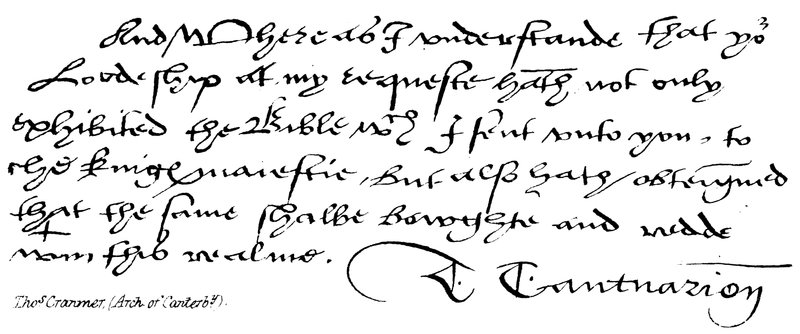 And Where as I understande that yoʳ
Lordeship at my requeste hath not only
exhibited the Bible wᶜʰ I sent unto you, to
the kingꝭ maiestie, but also hath obteigned
that the same shalbe bowghte and redde
wᵗin this realme.
T. Cantuarien
Thoˢ Cranmer, (Arch. of Canterbʸ).